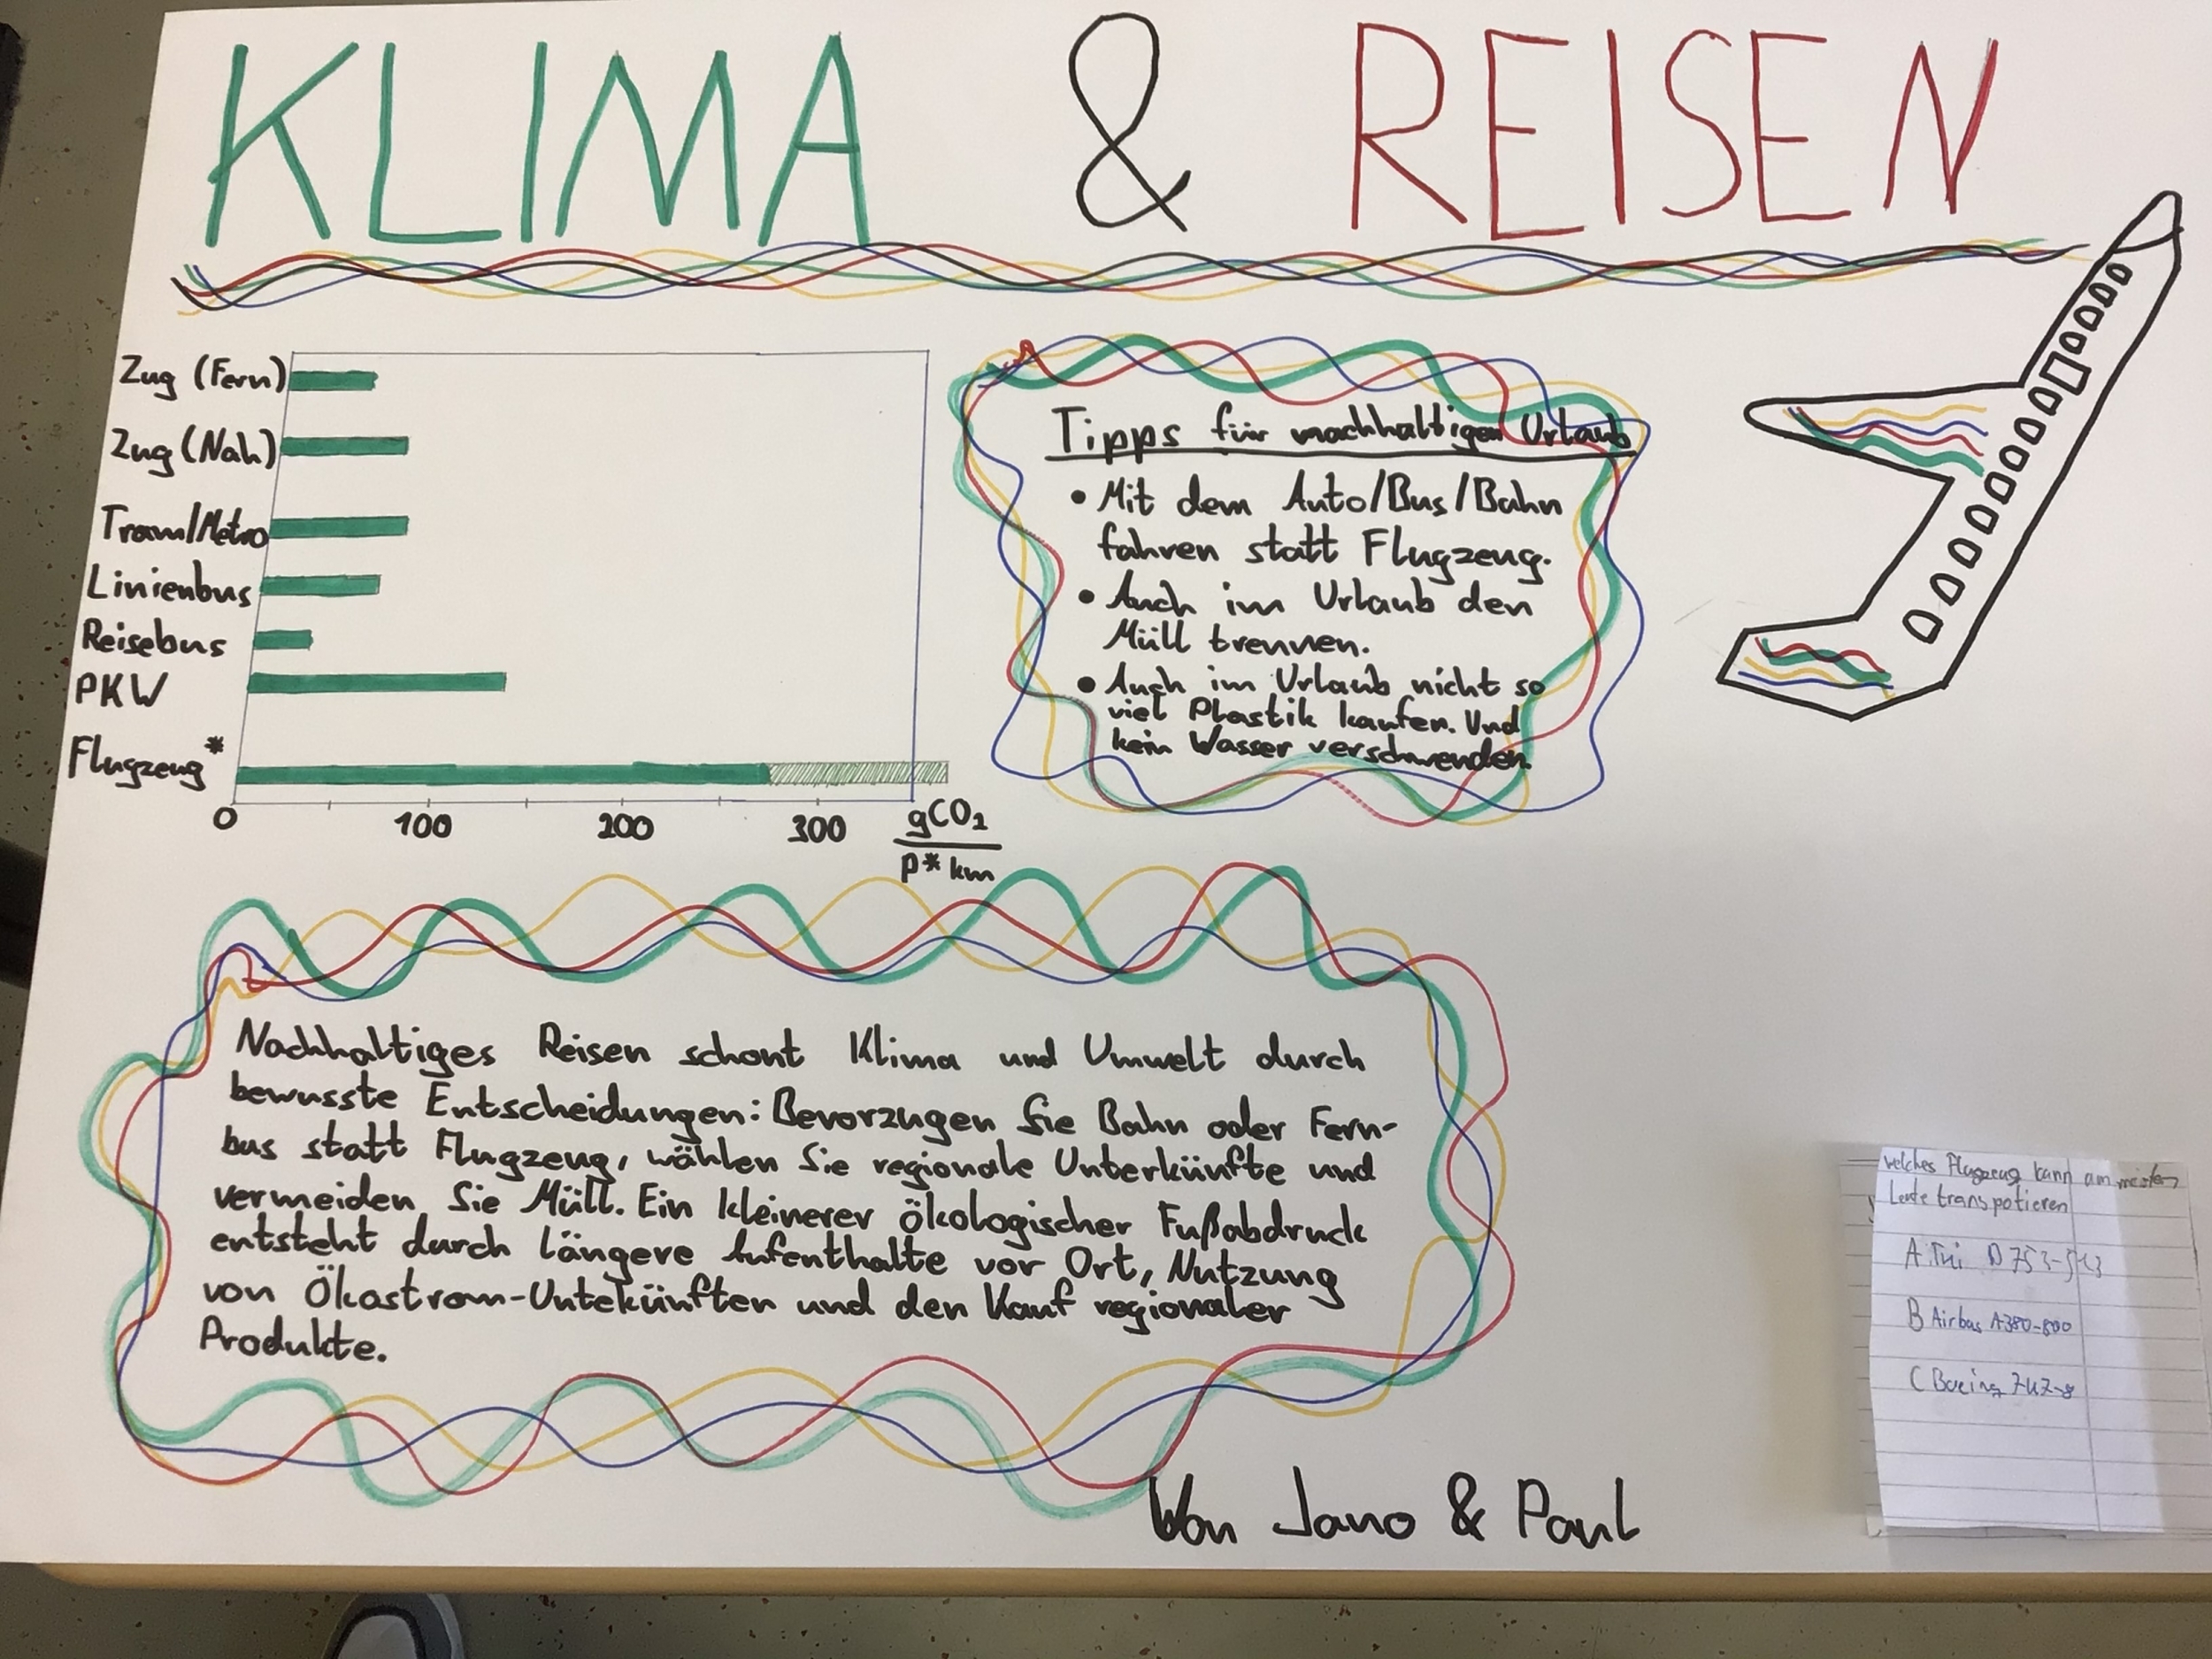 KLIMA & REISEN
Zug (Fern)
Zug (Nah)
Tram/Metro
Linienbus
Reisebus
PKW
Flugzeug*
0 100 200 300 gCO2
P*km
Tipps für nachhaltigen Urlaub
• Mit dem Auto/Bus/Bahn
fahren statt Flugzeug.
• Auch im Urlaub den
Müll trennen.
• Auch im Urlaub nicht so
viel Plastik kaufen. Und
kein Wasser verschwenden.
Nachhaltiges Reisen schont Klima und Umwelt durch
bewusste Entscheidungen: Bevorzugen Sie Bahn oder Fern-
bus statt Flugzeug, wählen Sie regionale Unterkünfte und
vermeiden Sie Müll. Ein kleinerer ökologischer Fußabdruck
entsteht durch längere Aufenthalte vor Ort, Nutzung
von Ökostrom-Untekünften und den Kauf regionaler
Produkte.
Von Jano & Paul
welches Flugzeug kann am meisten
Leute transpotieren
A Tui
B Airbus A380-800
C Boeing 747-8